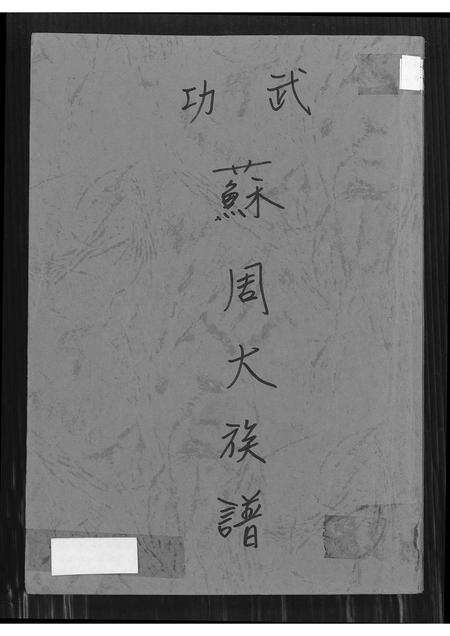 武功
蘇周大族譜